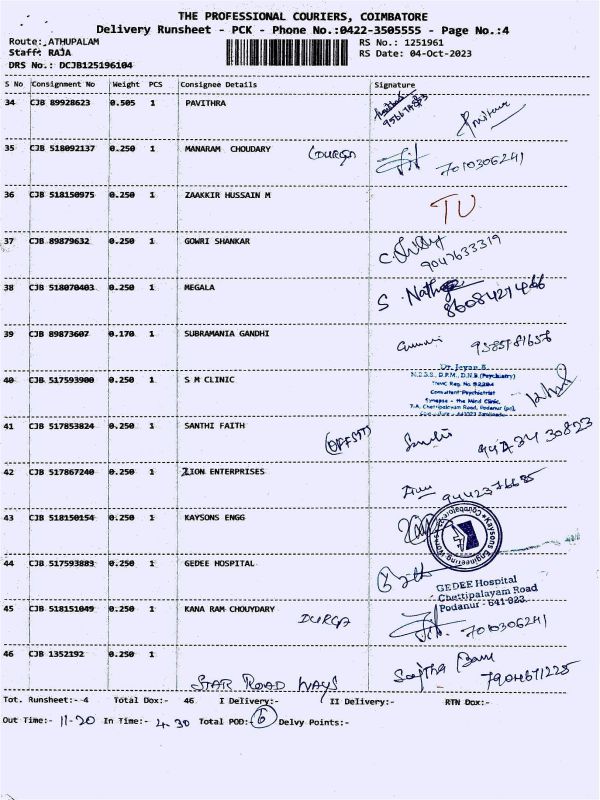 THE PROFESSIONAL COURIERS, COIMBATORE
Delivery Runsheet - PCK - Phone No.:0422-3505555 - Page No.:4
Route: ATHUPALAM RS No.: 1251961
Staff: RAJA RS Date: 04-Oct-2023
DRS No.: DCJB125196104
S No Consignment No Weight PCS Consignee Details Signature
34 CJB 89928623 0.505 1 PAVITHRA
35 CJB 518092137 0.250 1 MANARAM CHOUDARY (DURGA 7010306241
36 CJB 518150975 0.250 1 ZAAKKIR HUSSAIN M TU
37 CJB 89879632 0.250 1 GOWRI SHANKAR 9047633319
38 CJB 518070403 0.250 1 MEGALA
39 CJB 89873607 0.170 1 SUBRAMANIA GANDHI 9585781656
40 CJB 517593900 0.250 1 S M CLINIC
Consultant Psychiatrist
Synapse - the Mind Clinic,
7-A, Chettipalayam Road, Podanur (po),
41 CJB 517853824 0.250 1 SANTHI FAITH
42 CJB 517867240 0.250 1 ZION ENTERPRISES 9442376685
43 CJB 518150154 0.250 1 KAYSONS ENGG
Kaysons Engineering Works Coimbatore
44 CJB 517593883 0.250 1 GEDEE HOSPITAL
GEDEE Hospital
Chettipalayam Road
Podanur - 641 023.
45 CJB 518151049 0.250 1 KANA RAM CHOUYDARY DURGA 7010306241
46 CJB 1352192 0.250 1
STAR ROAD WAYS 7904671225
Tot. Runsheet:- 4 Total Dox:- 46 I Delivery:- II Delivery:- RTN Dox:-
Out Time:- 11-20 In Time:- 4.30 Total POD:- 6 Delvy Points:-